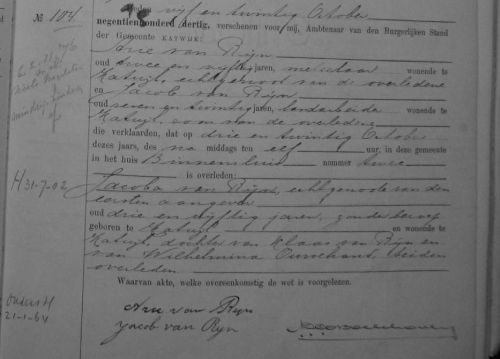 No. 104.
Heden vijf en twintig October
negentienhonderd dertig, verschenen voor mij, Ambtenaar van den Burgerlijken Stand
der Gemeente KATWIJK:
Arie van Rijn
oud twee en vijftig jaren, metselaar wonende te
Katwijk, echtgenoot van de overledene
en Jacob van Rijn
oud zeven en twintig jaren, landarbeider wonende te
Katwijk, zoon van de overledene
die verklaarden, dat op drie en twintig October
dezes jaars, des na middags ten elf uur, in deze gemeente
in het huis Binnensluis nommer twee
is overleden:
Jacoba van Rijn, echtgenoote van den
eersten aangever
oud drie en vijftig jaren, zonder beroep
geboren te Katwijk en wonende te
Katwijk, dochter van Klaas van Rijn en
van Wilhelmina Ouwehand, beiden
overleden.
Waarvan akte, welke overeenkomstig de wet is voorgelezen.
Arie van Rijn
Jacob van Rijn
H 31-7-02
21-1-64